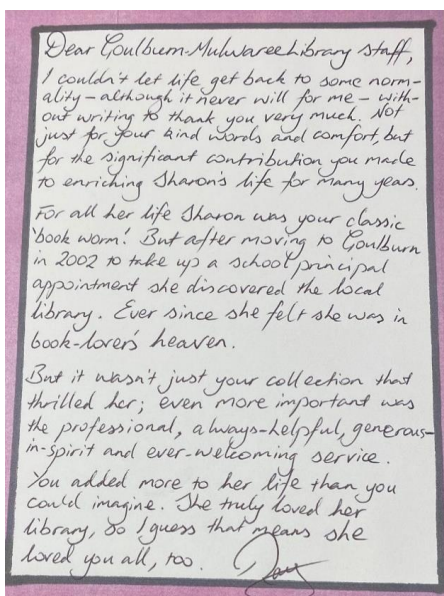 Dear Goulburn-Mulwaree Library staff,
I couldn't let life get back to some norm-
ality - although it never will for me - with-
out writing to thank you very much. Not
just for your kind words and comfort, but
for the significant contribution you made
to enriching Sharon's life for many years.
For all her life Sharon was your classic
'book worm'. But after moving to Goulburn
in 2002 to take up a school principal
appointment she discovered the local
library. Ever since she felt she was in
book-lover's heaven.
But it wasn't just your collection that
thrilled her; even more important was
the professional, always-helpful, generous-
in-spirit and ever-welcoming service.
You added more to her life than you
could imagine. She truly loved her
library, so I guess that means she
loved you all, too.